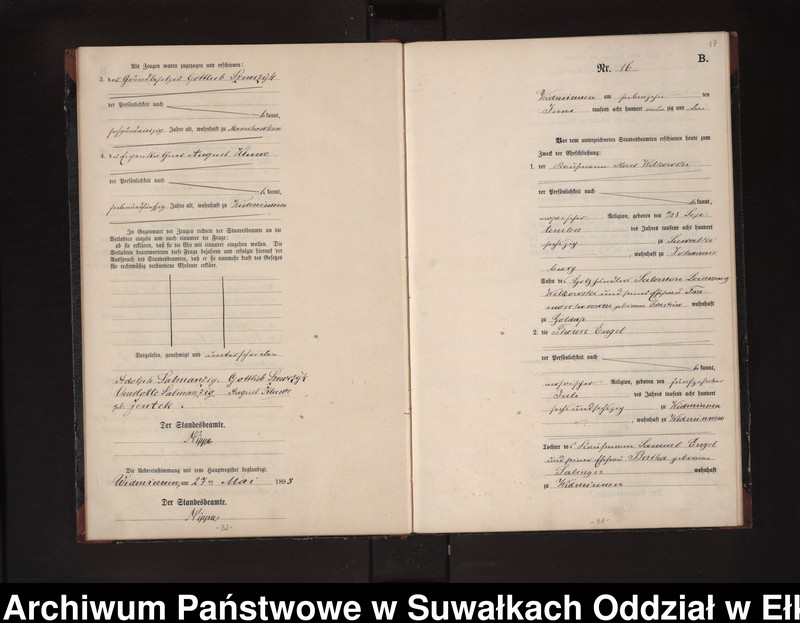 Als Zeugen waren zugezogen und erschienen:
3. des Grundbesitzer Gottlieb
der Persönlichkeit nach
kannt,
Jahre alt, wohnhaft zu
4. August Kluwe
der Persönlichkeit nach
kannt,
Jahre alt, wohnhaft zu Widminnen
In Gegenwart der Zeugen richtete der Standesbeamte an die
Verlobten einzeln und nach einander die Frage:
ob sie erklären, daß sie die Ehe mit einander eingehen wollen. Die
Verlobten beantworteten diese Frage bejahend und erfolgte hierauf der
Ausspruch des Standesbeamten, daß er sie nunmehr kraft des Gesetzes
für rechtmäßig verbundene Eheleute erkläre.
Vorgelesen, genehmigt und unterschrieben
Adolph Salmanzig. Gottlieb
Charlotte Salmanzig August Kluwe
geb.
Der Standesbeamte.
Nippa
Die Uebereinstimmung mit dem Hauptregister beglaubigt.
Widminnen, am 27ten Mai 1893
Der Standesbeamte.
Nippa
-32-
17
B.
Nr. 16
Widminnen am siebenzehn ten
Juni tausend acht hundert neun zig und drei
Vor dem unterzeichneten Standesbeamten erschienen heute zum
Zweck der Eheschließung:
1. der Kaufmann Wilkowski
der Persönlichkeit nach
kannt,
mosaischer Religion, geboren den 23 Sep
tember des Jahres tausend acht hundert
sechszig zu Suwalki
, wohnhaft zu Johannis
burg
Sohn des Holzhändler Salomon
Wilkowski und seiner Ehefrau
geborene wohnhaft
zu Goldap
2. die Therese Engel
der Persönlichkeit nach
kannt,
mosaischer Religion, geboren den fünfzehnten
Juli des Jahres tausend acht hundert
sechsundsechszig zu Widminnen
, wohnhaft zu Widminnen
Tochter des Kaufmann Samuel Engel
und seiner Ehefrau Bertha geborene
Salinger wohnhaft
zu Widminnen
-33-
Archiwum Państwowe w Suwałkach Oddział w Ełk